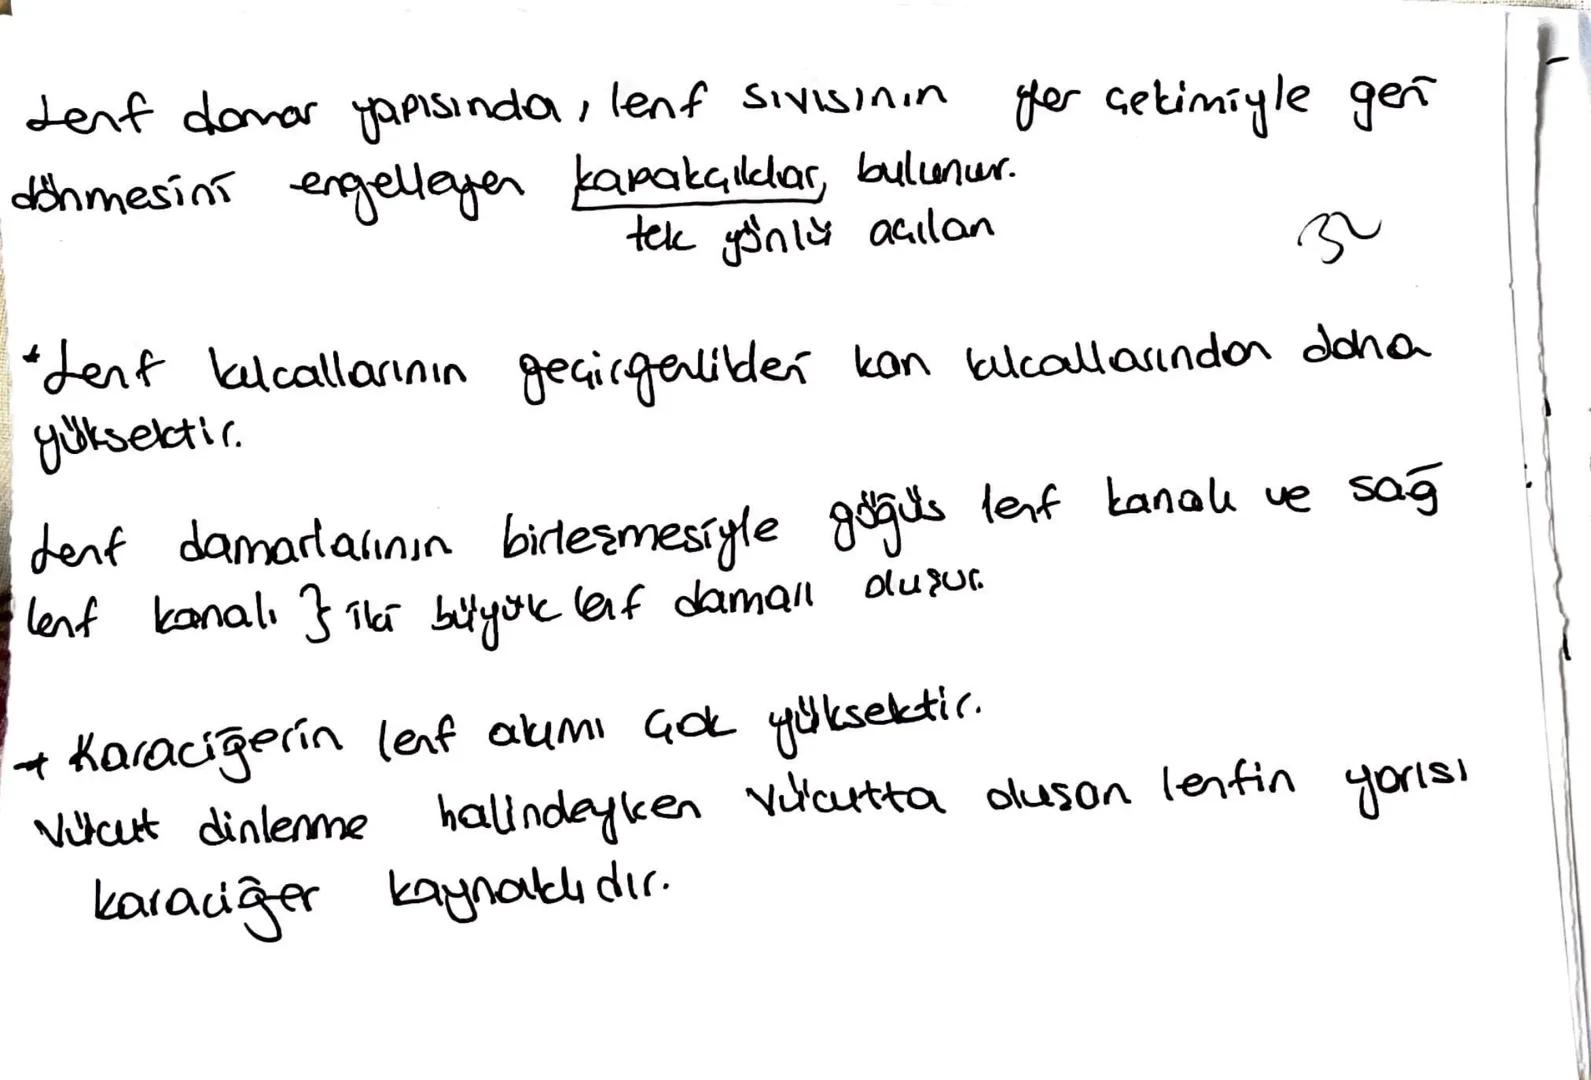 Lenf damar yapısında, lenf sıvısının yer çekimiyle geri
dönmesini engelleyen kapakçıklar bulunur.
tek yönlü açılan
*Lenf kılcallarının geçirgenlikleri kan kılcallarından daha
yüksektir.
Lenf damarlarının birleşmesiyle göğüs lenf kanalı ve sağ
lenf kanalı } iki büyük lenf damarı oluşur.
→ Karaciğerin lenf akımı çok yüksektir.
Vücut dinlenme halindeyken vücutta oluşan lenfin yarısı
karaciğer kaynaklıdır.